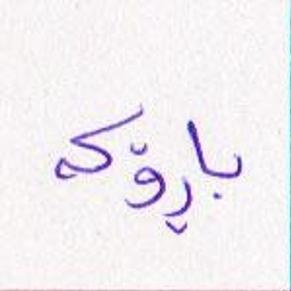 باڕۆکە